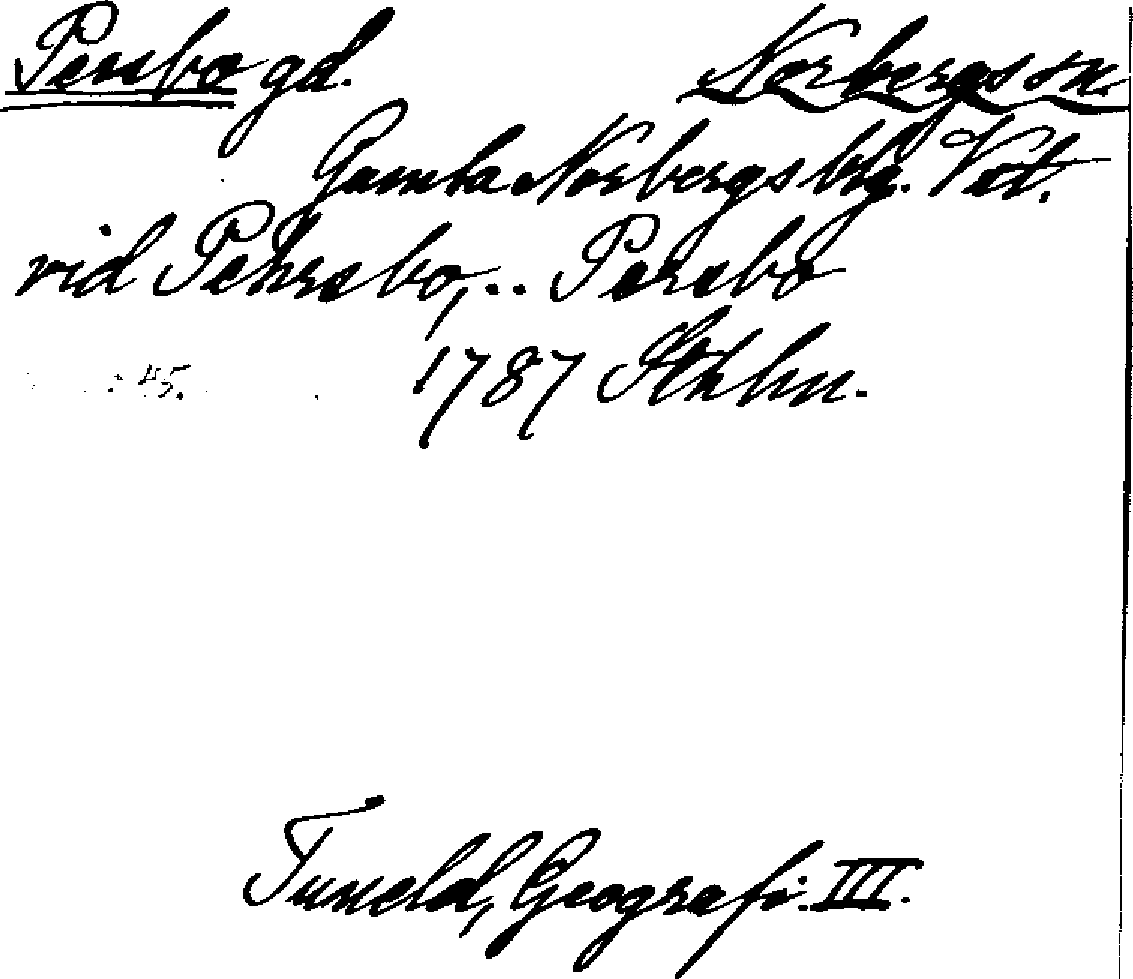 Persbo gd. Norbergs sn.
Gamla Norbergs blg. Vst.
vid Pehrsbo, .. Persbo
: 45. 1787 Sthlm.
Tuneld, Geografi. III.